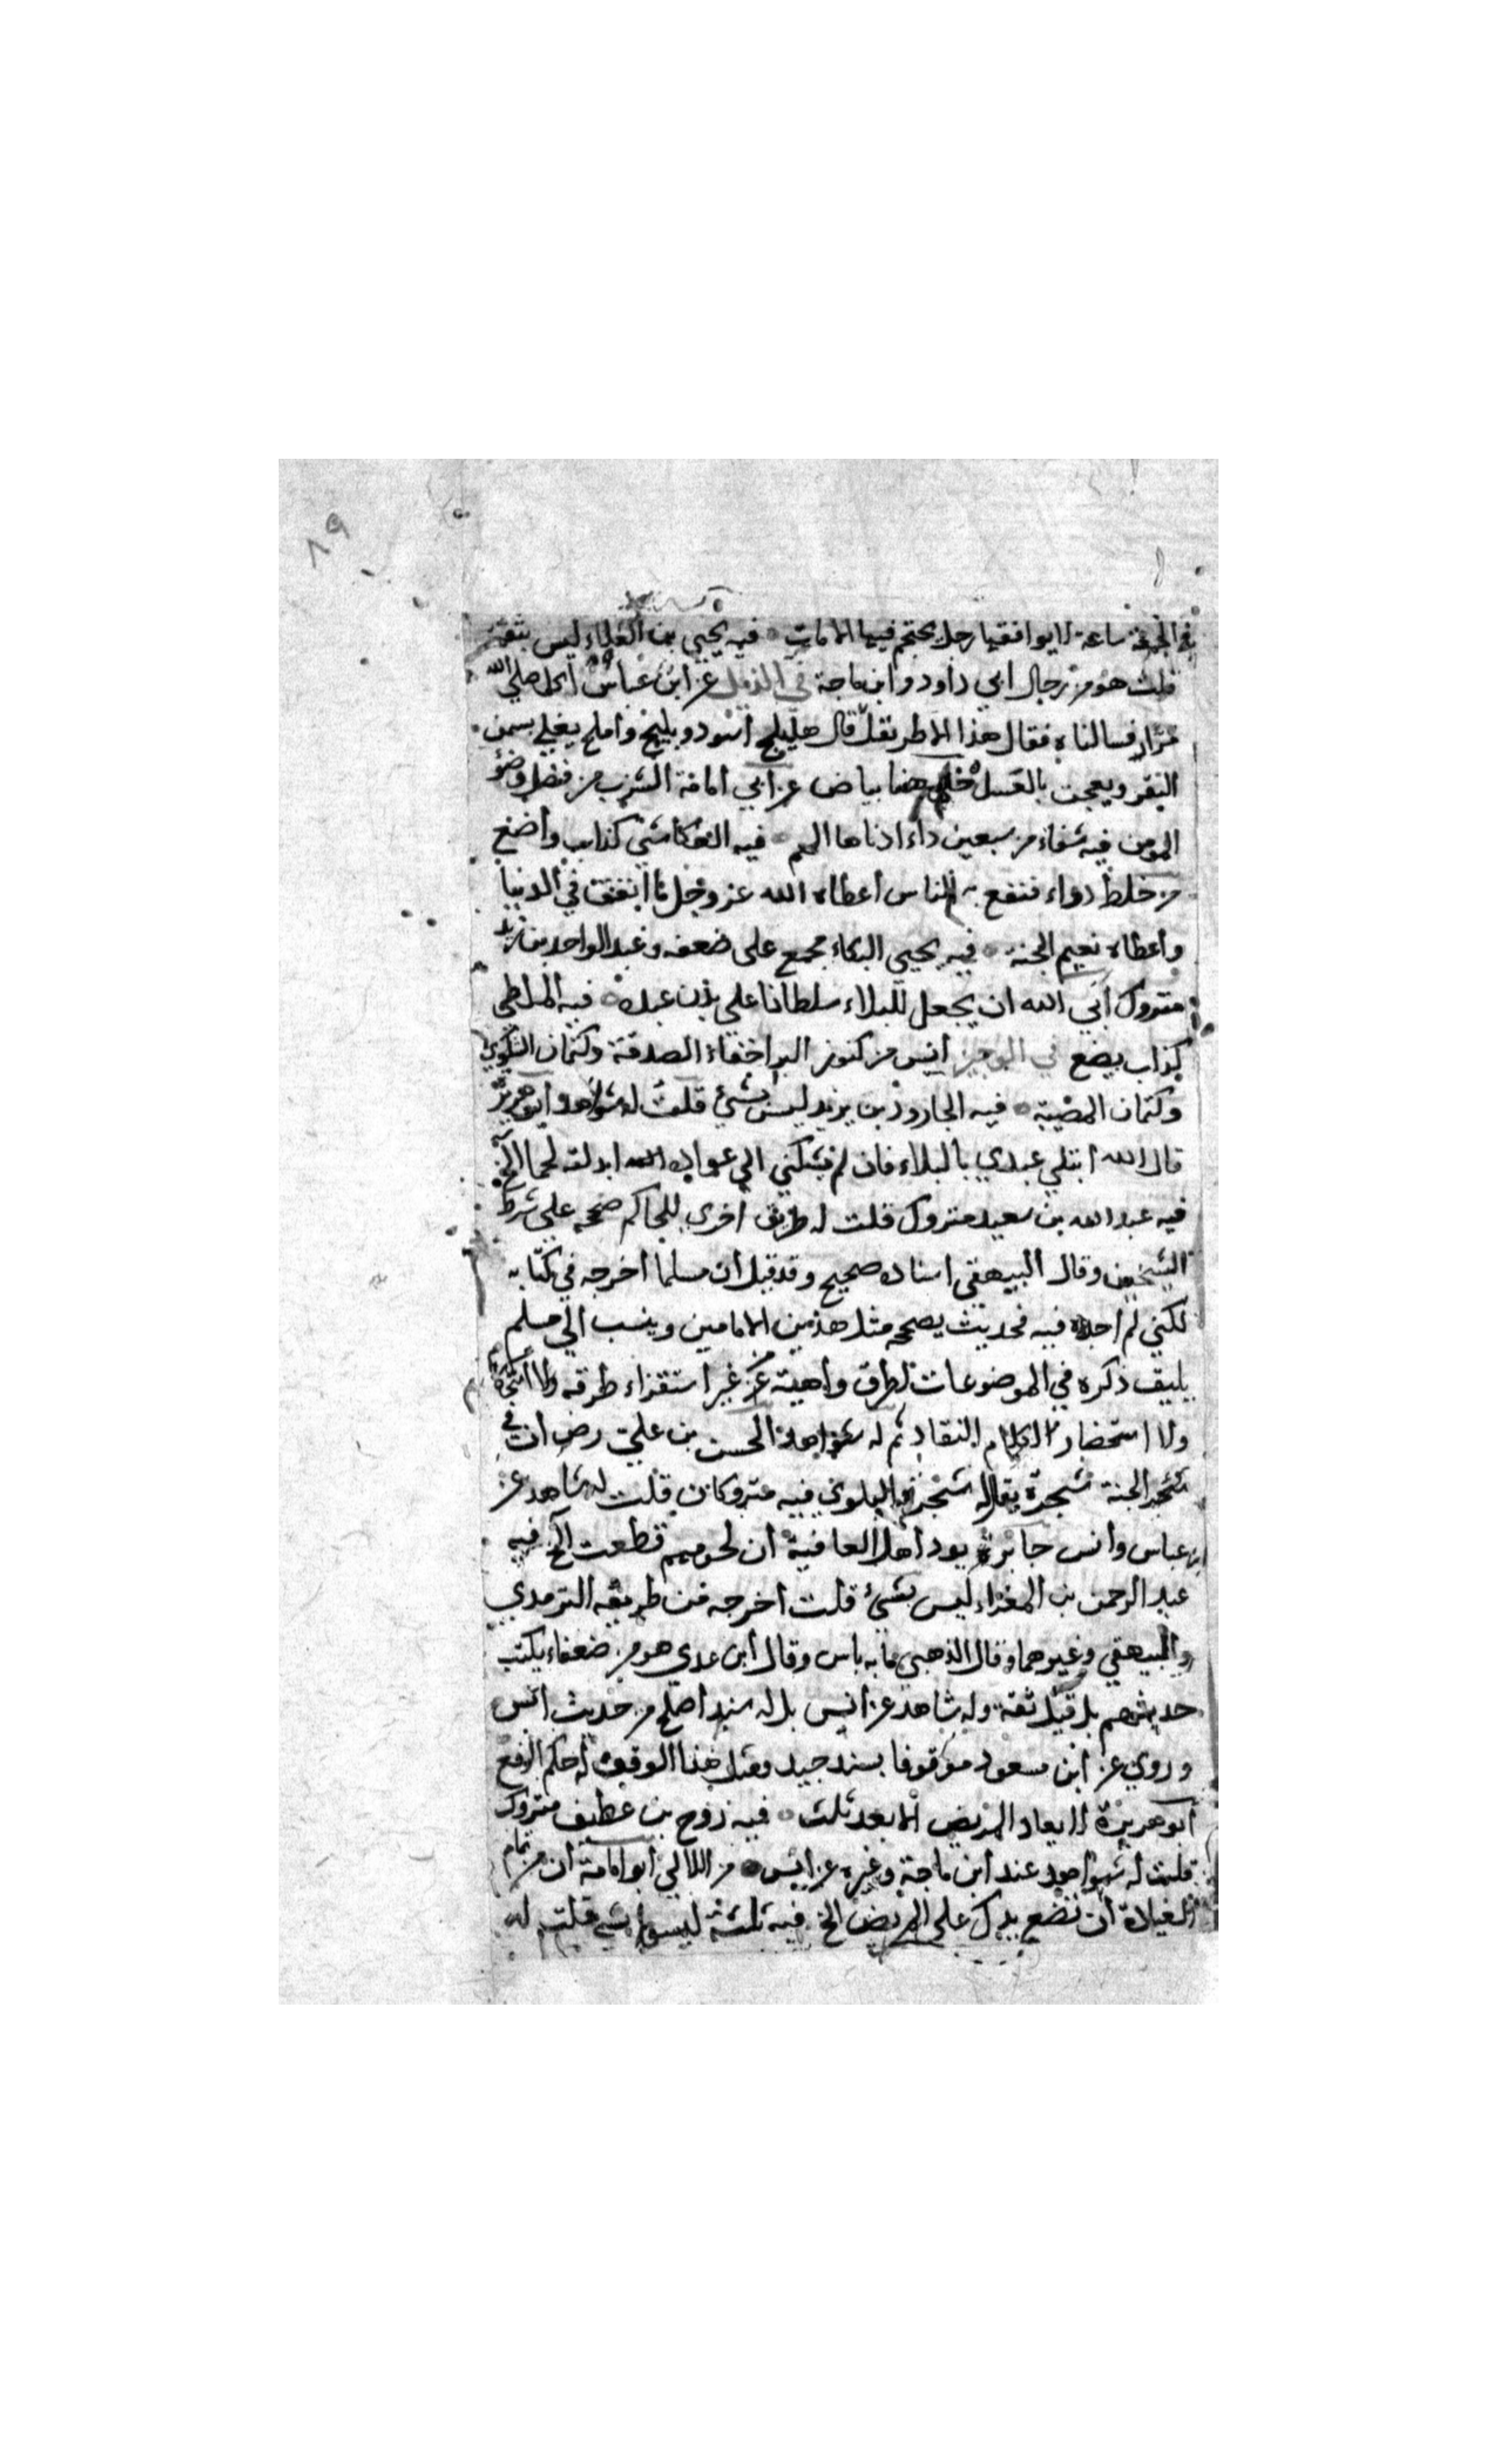 ٨٩
في الجمعة ساعة لا يوافقها رجل يحتجم فيها الا مات فيه يحيى بن العلاء ليس بثقة
قلت هو من رجال ابي داود وابن ماجة في الذيل عن ابن عباس اكل صلى الله
فسالناه فقال هذا الاطريفل قال هليلج اسود وبليلج واملج يغلى بسمن
البقر ويعجن بالعسل هنا بياض عن ابي امامة الشرب من فضل وضوء
المومن فيه شفاء من سبعين داء ادناها الهم فيه العكاشي كذاب واضع
من خلط دواء فنفع به الناس اعطاه الله عز وجل ما انفق في الدنيا
واعطاه نعيم الجنة فيه يحيى البكاء مجمع على ضعفه وعبد الواحد بن زيد
متروك ابى الله ان يجعل للبلاء سلطانا على بدن عبده فيه الملطي
كذاب يضع في الوجيز انس من كنوز البر اخفاء الصدقة وكتمان الشكوى
وكتمان المصيبة فيه الجارود بن يزيد ليس بشئ قلت له شواهد ابو هريرة
قال الله ابتلي عبدي بالبلاء فان لم يشكني الى عواده ابدلته لحما الخ
فيه عبد الله بن سعيد متروك قلت له طريق اخرى للحاكم صححه على شرط
الشيخين وقال البيهقي اسناده صحيح وقد قيل ان مسلما اخرجه في كتابه
لكني لم اجده فيه فحديث يصححه مثل هذين الامامين وينسب الى مسلم
يليق ذكره في الموضوعات لطرق واهية من غير استقراء طرقه
ولا استحضار الكلام النقاد ثم له شواهد الحسن بن علي رض ان في
شجر الجنة شجرة يقال له شجرة البلوى فيه متروكان قلت له شاهد عن
ابن عباس وانس جابر يود اهل العافية ان لحومهم قطعت الخ فيه
عبد الرحمن بن المغراء ليس بشئ قلت اخرجه من طريقه الترمذي
والبيهقي وغيرهما وقال الذهبي ما به باس وقال ابن عدي هو من ضعفاء يكتب
حديثهم بل قيل ثقة وله شاهد عن انس بل له سند اصلح من حديث انس
وروي عن ابن مسعود موقوفا بسند جيد ومثل هذا الوقف له حكم الرفع
ابو هريرة لا يعاد المريض الا بعد ثلث فيه روح بن غطيف متروك
قلت له شواهد عند ابن ماجة وغيره عن انس من اللالي ابو امامة ان من تمام
العيادة ان تضع يدك على المريض الخ فيه ثلثة ليسوا بشئ قلت له